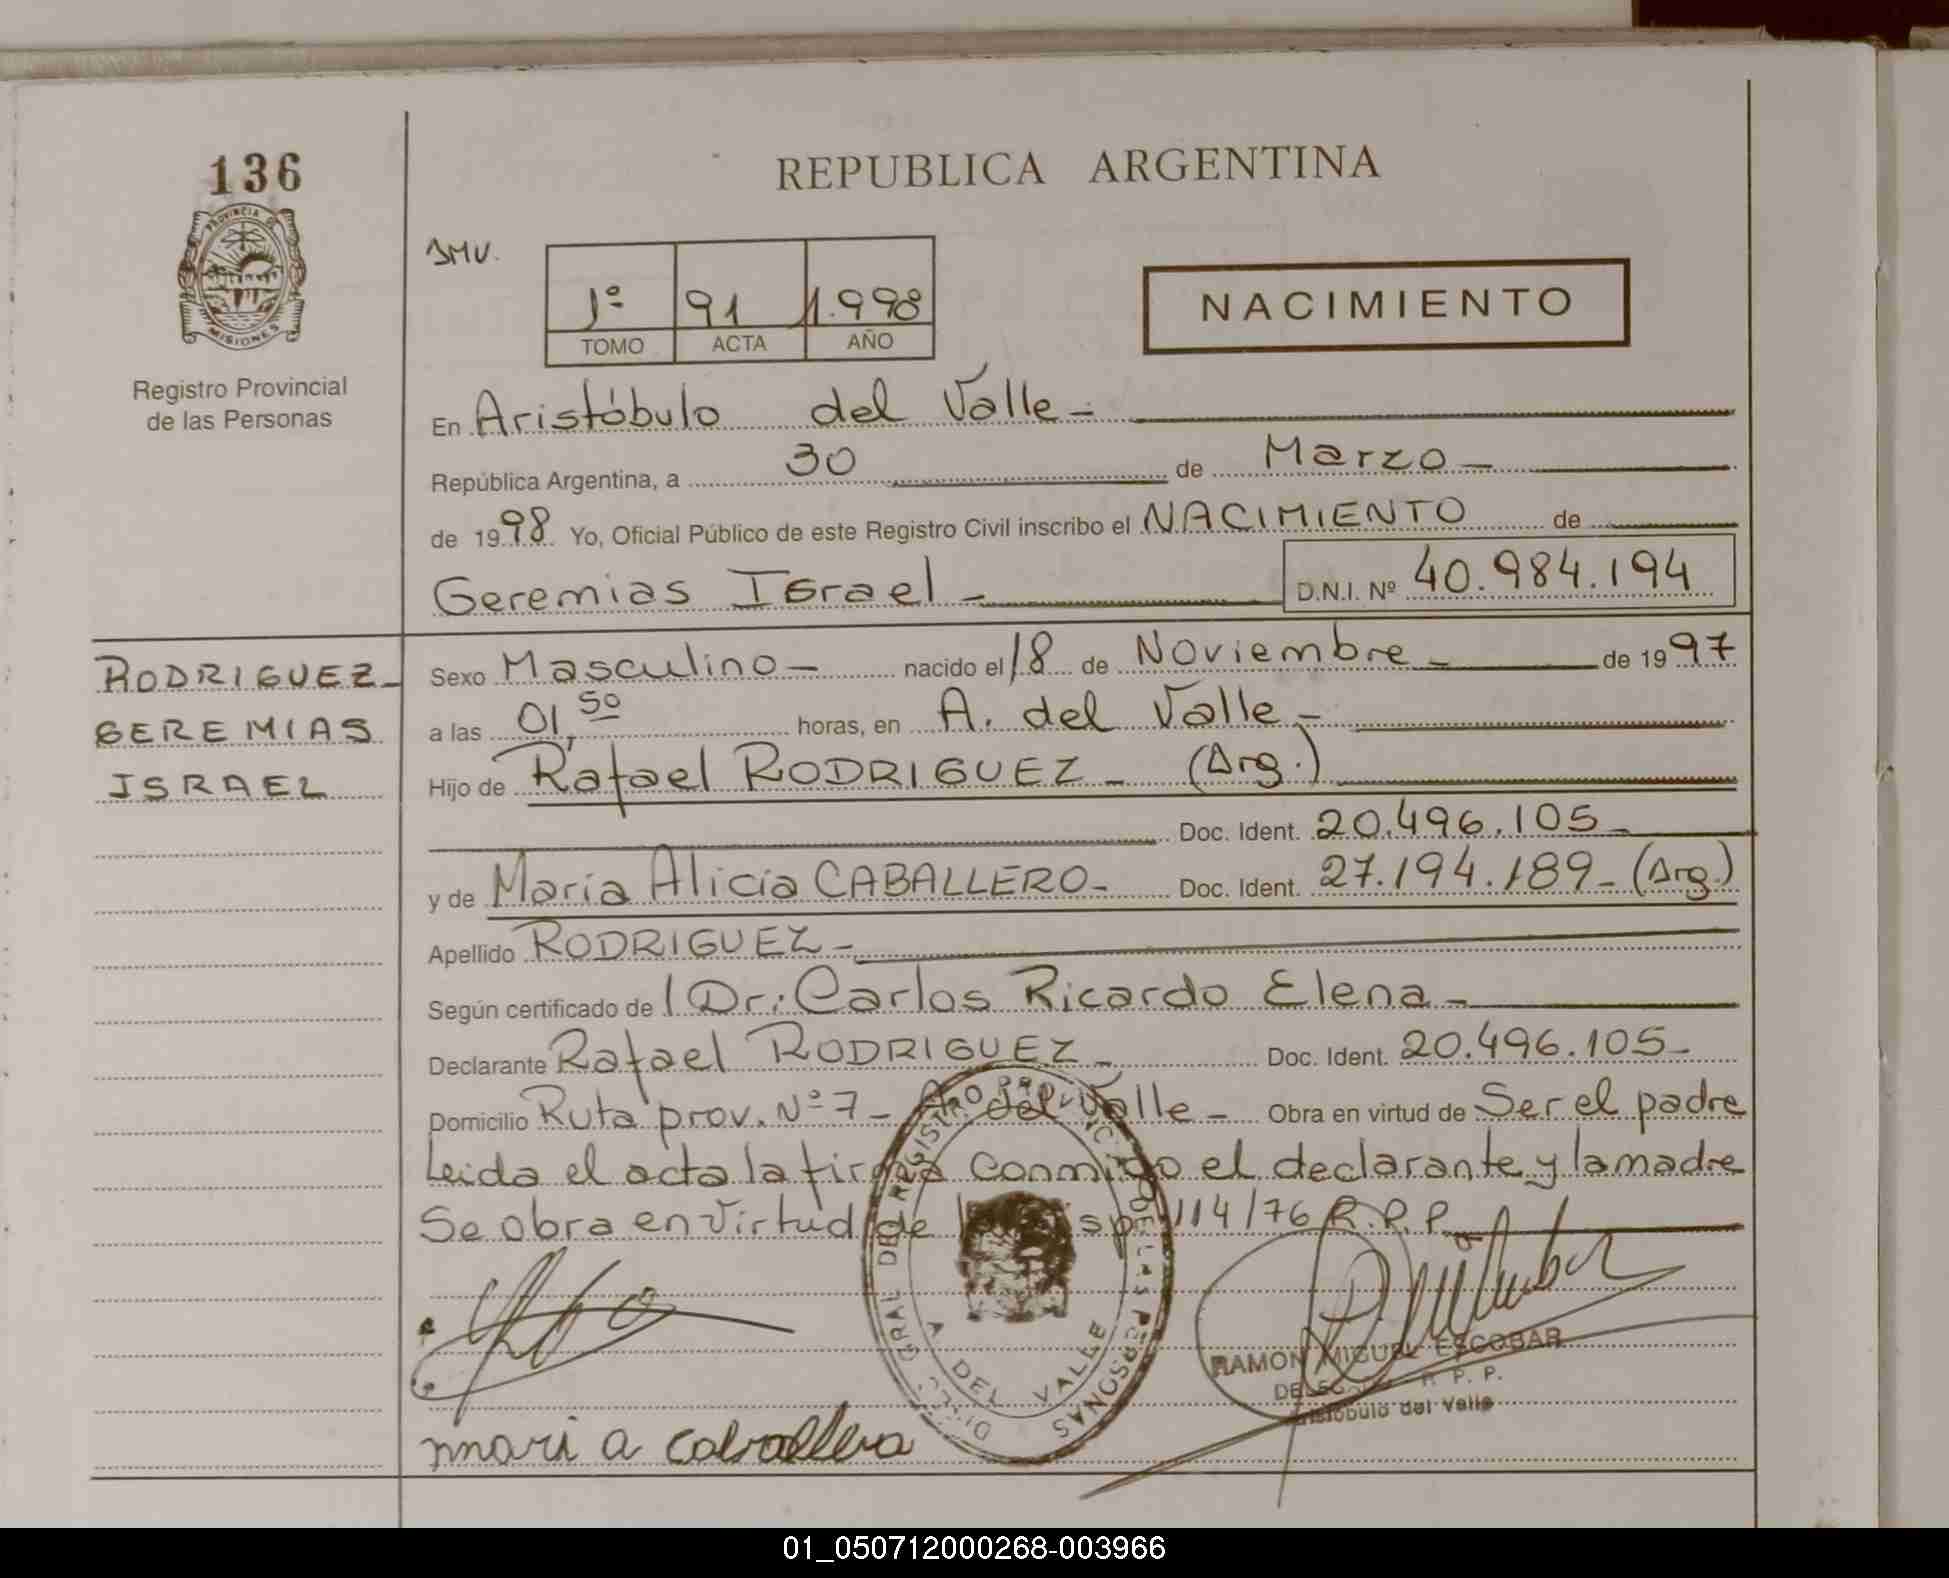 136
PROVINCIA DE
MISIONES
Registro Provincial
de las Personas
REPUBLICA ARGENTINA
JMV.
1º 91 1.998
TOMO ACTA AÑO
NACIMIENTO
En Aristóbulo del Valle -
República Argentina, a 30 de Marzo -
de 1998 Yo, Oficial Público de este Registro Civil inscribo el NACIMIENTO de
Geremias Israel - D.N.I. Nº 40.984.194
RODRIGUEZ -
GEREMIAS
ISRAEL
Sexo Masculino - nacido el 18 de Noviembre - de 1997
a las 01,50 horas, en A. del Valle -
Hijo de Rafael RODRIGUEZ - (Arg.)
Doc. Ident. 20.496.105 -
y de María Alicia CABALLERO - Doc. Ident. 27.194.189 - (Arg.)
Apellido RODRIGUEZ -
Según certificado de l Dr.: Carlos Ricardo Elena -
Declarante Rafael RODRIGUEZ - Doc. Ident. 20.496.105 -
Domicilio Ruta prov. Nº 7 - A. del Valle - Obra en virtud de Ser el padre
Leida el acta la firma conmigo el declarante y la madre
Se obra en virtud de la Disp. 114/76 R.P.P.
DIREC. GRAL DEL REGISTRO PROVINCIAL DE LAS PERSONAS
A DEL VALLE
RAMON MIGUEL ESCOBAR
DELEGADO R. P. P.
Aristóbulo del Valle
mari a caballero
01_050712000268-003966